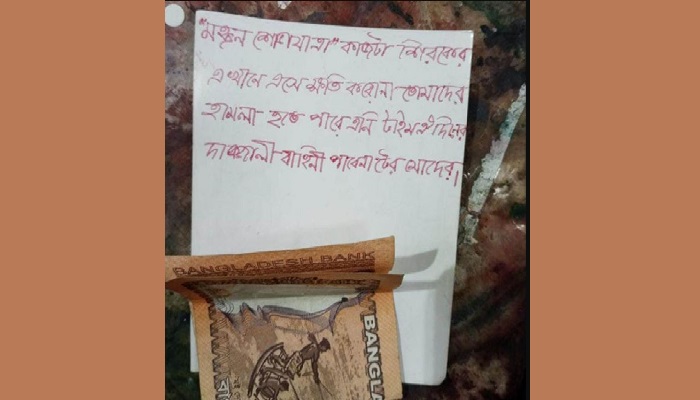 "মঙ্গল শোভাযাত্রা" কাজটা শিরকের
এখানে এসে ক্ষতি করোনা তোমাদের
হামলা হতে পারে এনি টাইম ঐ দিনের
দাজ্জালী বাহিনী পাবেনা টের মোদের।
BANGLADESH BANK
BANGLA